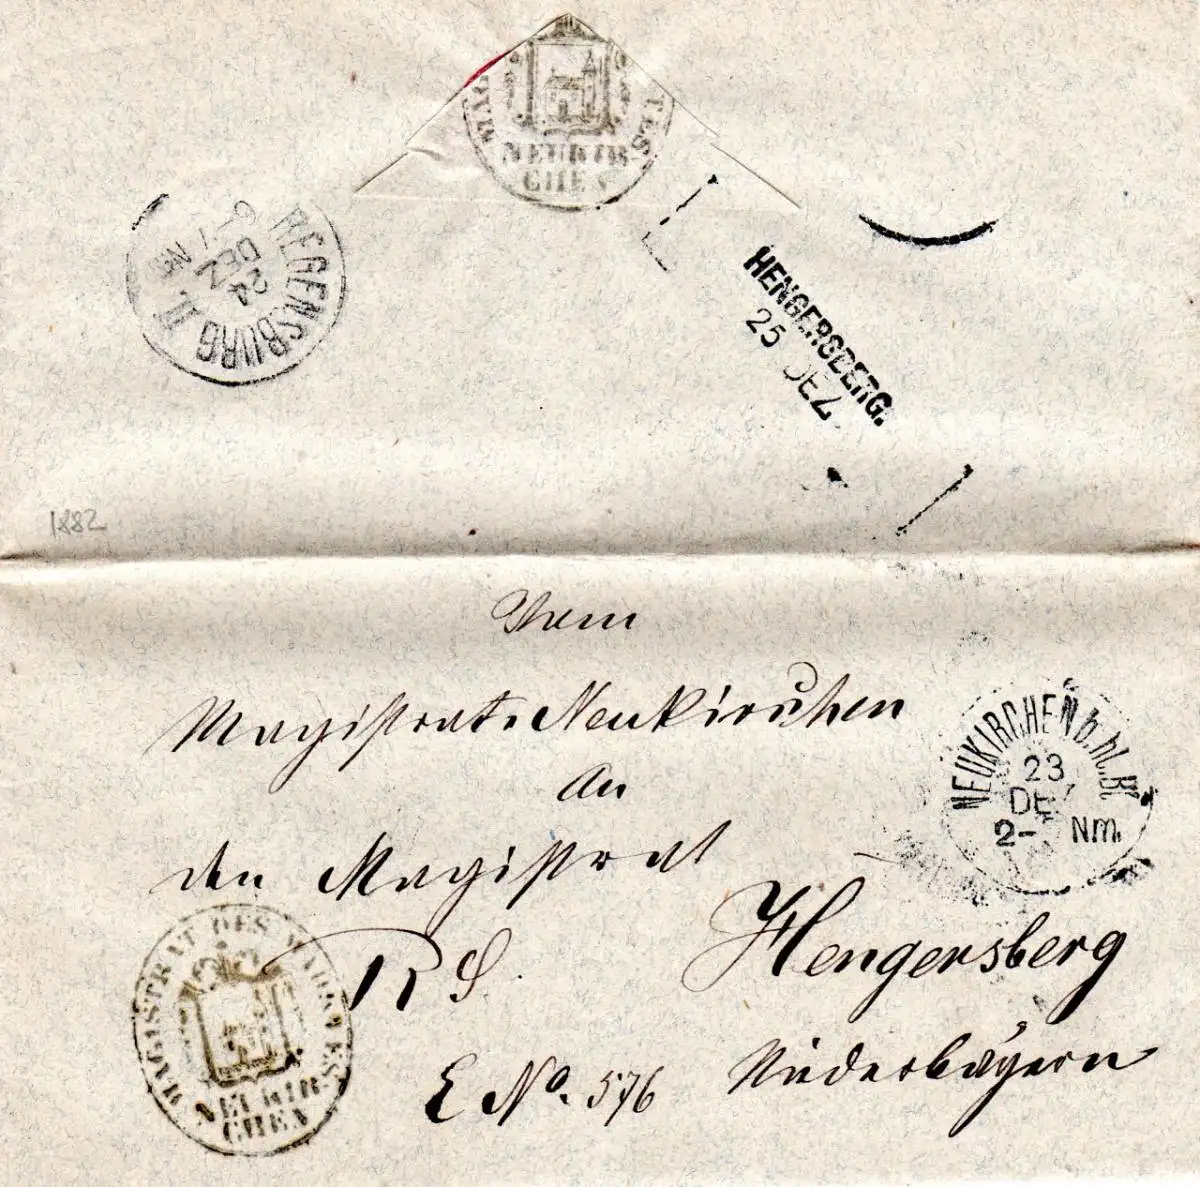 MAG TES
NEUKIR-
CHEN
REGENSBURG II.
24
DEZ
6-7
HENGERSBERG.
25 DEZ
1882
Vom
Magistrat Neukirchen
An
den Magistrat
Hengersberg
R S.
Niederbayern
E No. 576
NEUKIRCHEN b. hl. Bl
23
DEZ
2- Nm.
MAGISTRAT DES MARKTES
NEUKIR-
CHEN